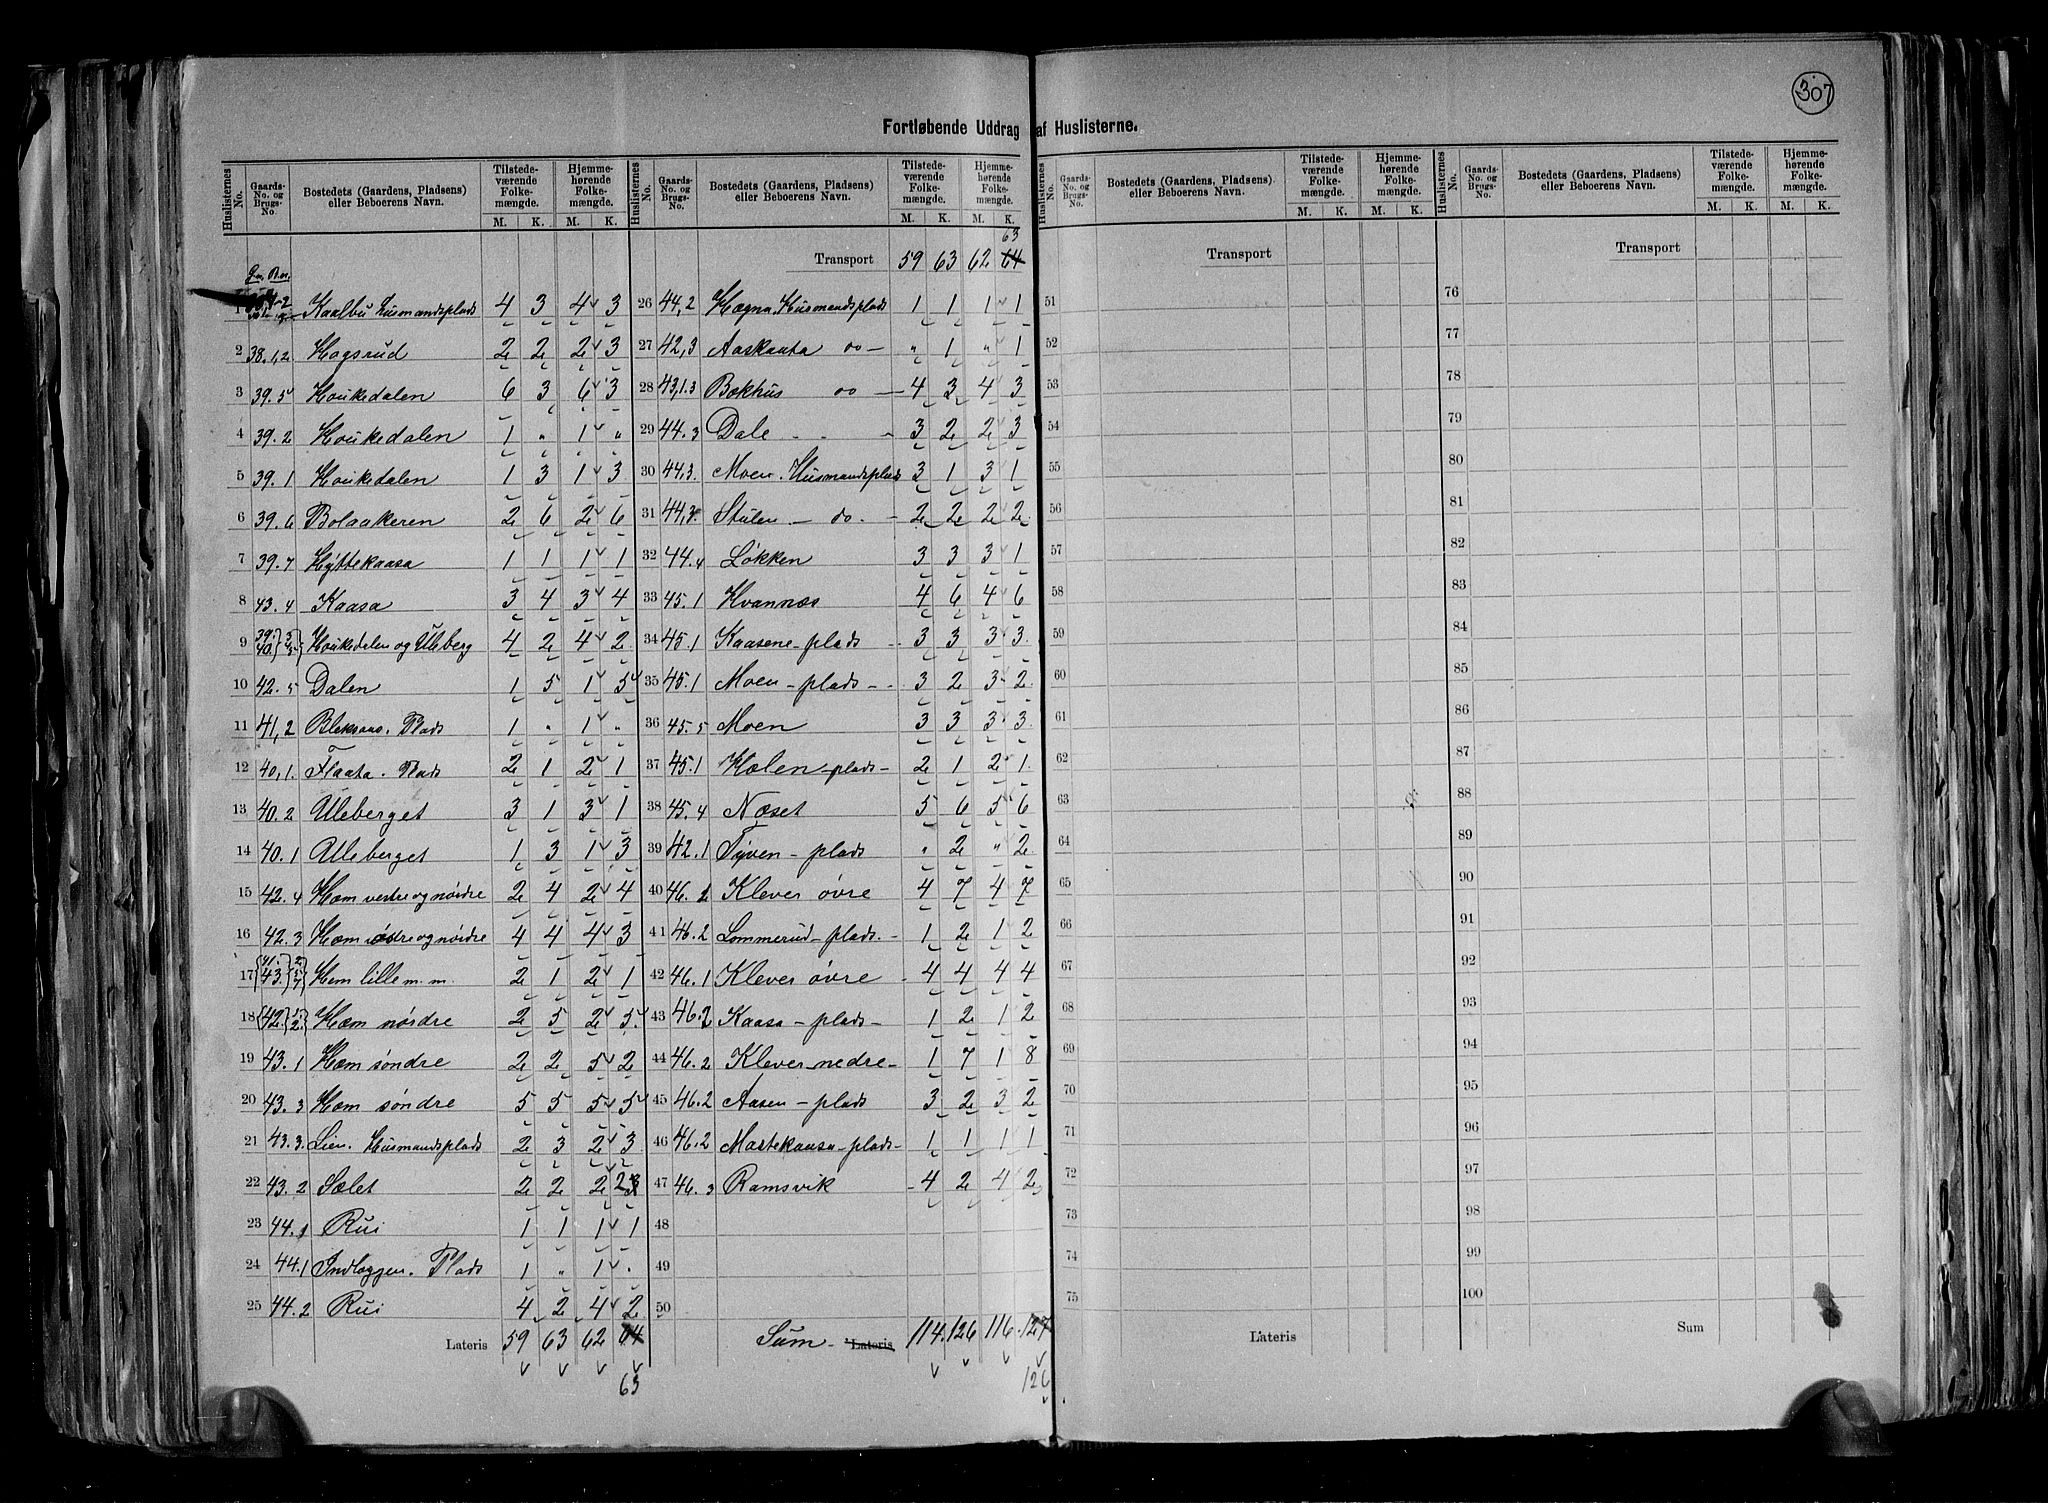 307
Fortløbende Uddrag af Huslisterne.
Huslisternes No. Gaards-No. og Brugs-No. Bostedets (Gaardens, Pladsens) eller Beboerens Navn. Tilstedeværende Folkemængde. M. K. Hjemmehørende Folkemængde. M. K.
Gn. Bn.
1 Kaalbu Husmandsplads 4 3 4 3
2 38.1,2 Hogsrud 2 2 2 3
3 39.5 Houkedalen 6 3 6 3
4 39.2 Houkedalen 1 " 1 "
5 39.1 Houkedalen 1 3 1 3
6 39.6 Bolaakeren 2 6 2 6
7 39.7 Hyttekaasa 1 1 1 1
8 43.4 Kaasa 3 4 3 4
9 39. 40. Houkedalen og Ulleberg 4 2 4 2
10 42.5 Dalen 1 5 1 5
11 41,2 Plads 1 " 1 "
12 40,1. Flaata. Plads 2 1 2 1
13 40.2 Ulleberget 3 1 3 1
14 40.1 Ulleberget 1 3 1 3
15 42.4 Hæm vestre og nördre 2 4 2 4
16 42.3 Hæm og nördre 4 4 4 3
17 41. 43. Hem lille m. m. 2 1 2 1
18 42. 1. 2. Hæm nördre 2 5 2 5
19 43.1 Hæm söndre 2 2 5 2
20 43.3 Hæm söndre 5 5 5 5
21 43.3. Lien. Husmandsplads 2 3 2 3
22 43.2 Sælet 2 2 2 2 3
23 44.1 Rui 1 1 1 1
24 44.1 Indlæggen. Plads 1 " 1 "
25 44.2 Rui 4 2 4 2
Lateris 59 63 62 64
63
Huslisternes No. Gaards-No. og Brugs-No. Bostedets (Gaardens, Pladsens) eller Beboerens Navn. Tilstedeværende Folkemængde. M. K. Hjemmehørende Folkemængde. M. K.
63
Transport 59 63 62 64
26 44,2 Hægna. Husmandsplads 1 1 1 1
27 42,3 Aaskaata do — " 1 " 1
28 43,1.3 Bakhus do — 4 3 4 3
29 44.3 Dale - - - 3 2 2 3
30 44,3. Moen. Husmandsplads 3 1 3 1
31 44,3. Stulen — do. - 2 2 2 2
32 44.4 Lökken 3 3 3 1
33 45.1 Hvannes 4 6 4 6
34 45.1 Kaasene - plads - 3 3 3 3
35 45.1 Moen - plads - 3 2 3 2
36 45.5 Moen 3 3 3 3
37 45.1 Holen - plads - 2 1 2 1
38 45.4 Næset 5 6 5 6
39 42.1 Tyven - plads " 2 " 2
40 46.2 Klever övre 4 7 4 7
41 46.2 Lommerud - plads. - 1 2 1 2
42 46.1 Klever övre - 4 4 4 4
43 46.2 Kaasa - plads - 1 2 1 2
44 46.2 Klever nedre - 1 7 1 8
45 46.2 Aasen - plads 3 2 3 2
46 46.2 Mastekaasa - plads - 1 1 1 1
47 46.3 Ramsvik - 4 2 4 2
48
49
50
Sum - Lateris 114. 126 116. 127
126
Huslisternes No. Gaards-No. og Brugs-No. Bostedets (Gaardens, Pladsens) eller Beboerens Navn. Tilstedeværende Folkemængde. M. K. Hjemmehørende Folkemængde. M. K.
Transport
51
52
53
54
55
56
57
58
59
60
61
62
63
64
65
66
67
68
69
70
71
72
73
74
75
Lateris
Huslisternes No. Gaards-No. og Brugs-No. Bostedets (Gaardens, Pladsens) eller Beboerens Navn. Tilstedeværende Folkemængde. M. K. Hjemmehørende Folkemængde. M. K.
Transport
76
77
78
79
80
81
82
83
84
85
86
87
88
89
90
91
92
93
94
95
96
97
98
99
100
Sum